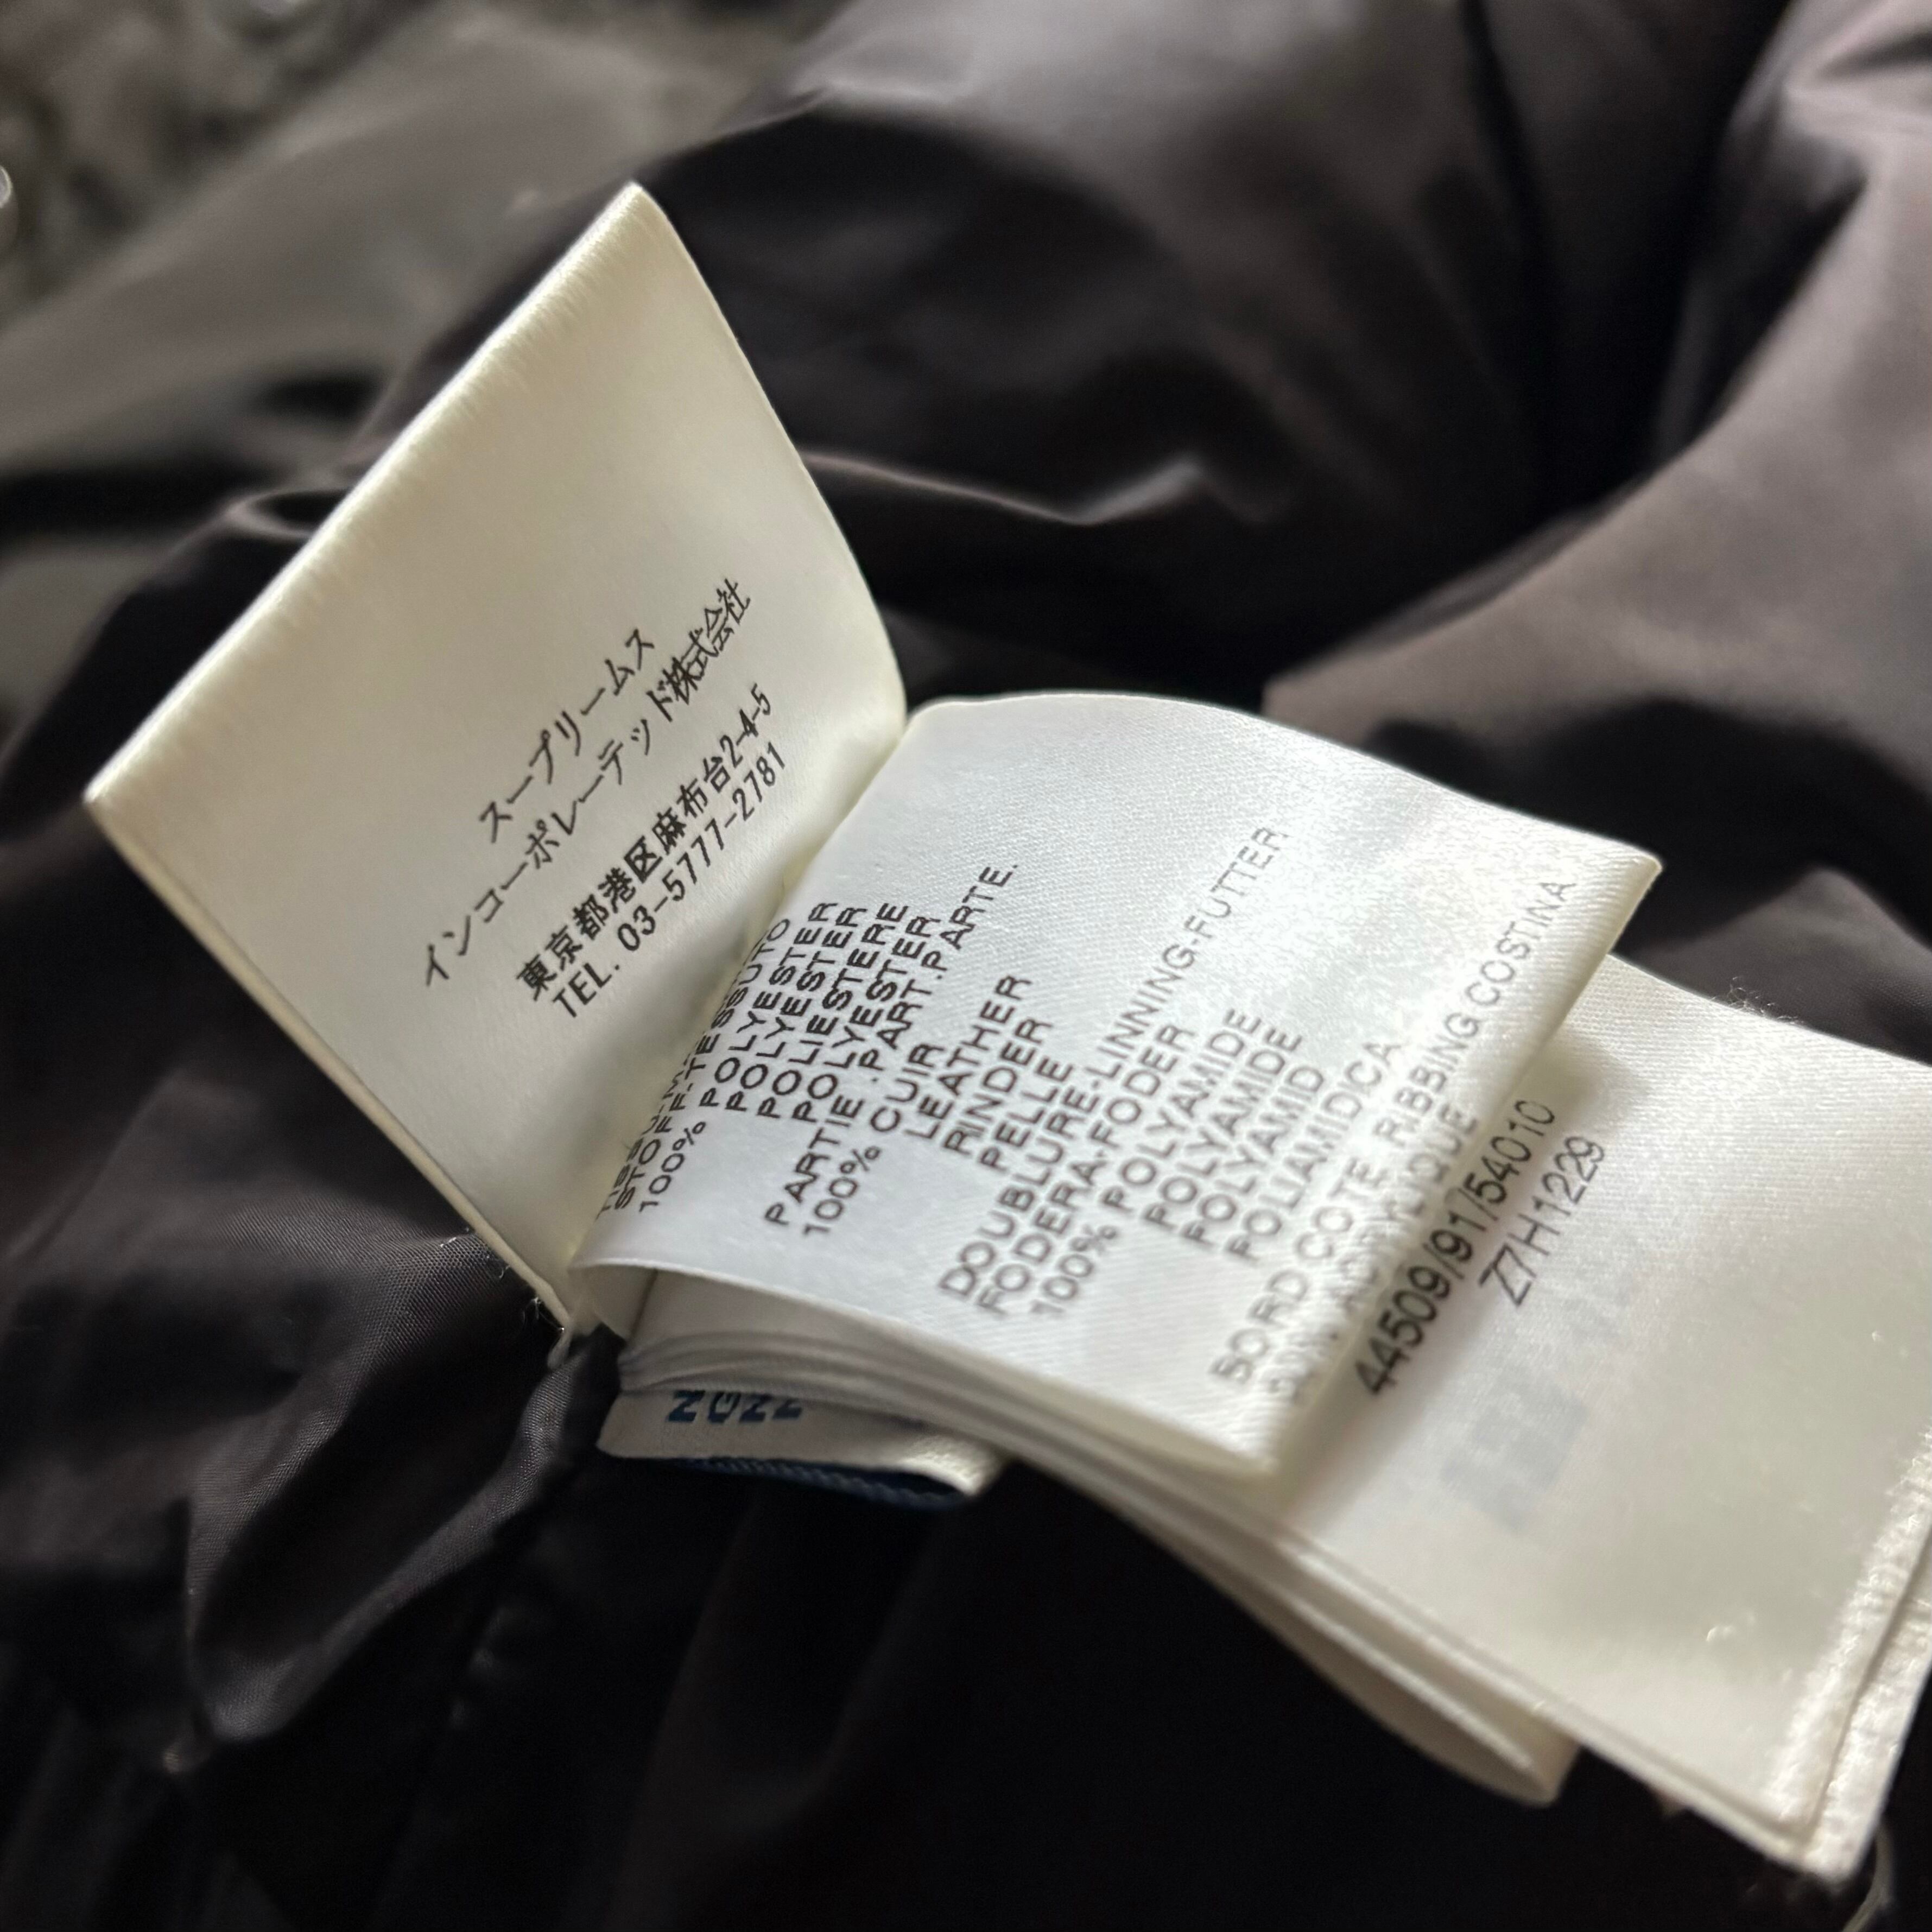 スープリームス
インコーポレーテッド株式会社
東京都港区麻布台2-4-5
TEL. 03-5777-2781
100% POLYESTER
POLYESTER
POLIESTERE
POLYESTER
PARTIE .PART .PARTE.
100% CUIR
LEATHER
RINDER
PELLE
DOUBLURE-LINNING-FUTTER.
FODERA-FODER
100% POLYAMIDE
POLYAMIDE
POLYAMID
POLIAMIDICA
BORD COTE. RIBBING COSTINA.
44509/91/54010
Z7H1229